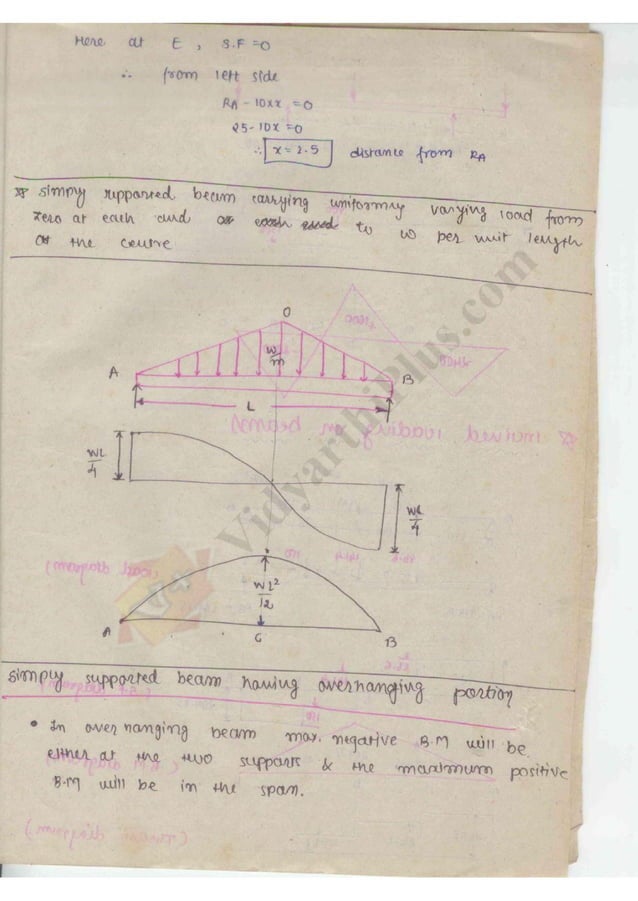 Here at E, S.F = 0
∴ from left side
RA - 10xx = 0
25 - 10x = 0
∴ x = 2.5 distance from RA
simply supported beam carrying uniformly varying load from
zero at each end to w per unit length
at the centre
O
A
w/m
B
L
WL/4
WL/4
Wl²/12
A
C
B
simply supported beam having overhanging portion
• In over hanging beam max. negative B.M will be
either at the two supports & the maximum positive
B.M will be in the span.
VidyarthiPlus.com